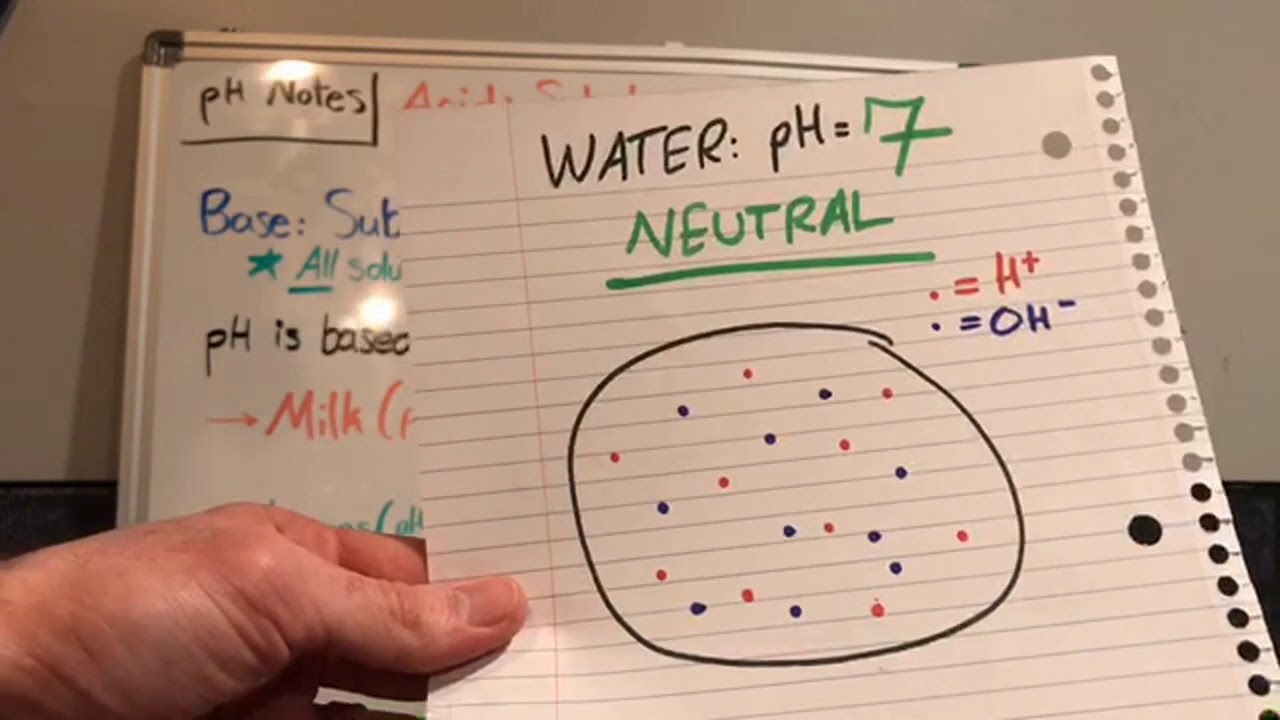 pH Notes
Base: Sub
* All solu
pH is based
→ Milk (
WATER: pH = 7
NEUTRAL
. = H+
. = OH-